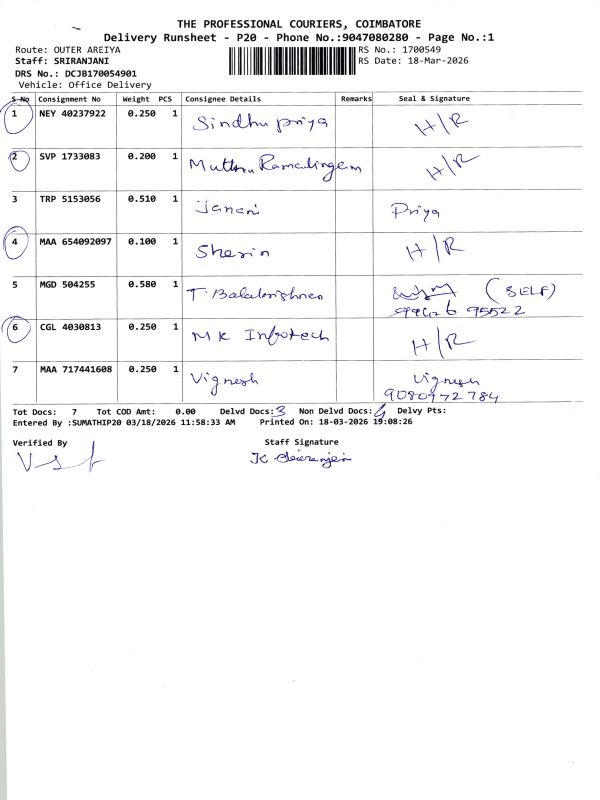 THE PROFESSIONAL COURIERS, COIMBATORE
Delivery Runsheet - P20 - Phone No.:9047080280 - Page No.:1
Route: OUTER AREIYA RS No.: 1700549
Staff: SRIRANJANI RS Date: 18-Mar-2026
DRS No.: DCJB170054901
Vehicle: Office Delivery
S No Consignment No Weight PCS Consignee Details Remarks Seal & Signature
1 NEY 40237922 0.250 1 Sindhu priya H/R
2 SVP 1733083 0.200 1 Muthu Ramalingam H/R
3 TRP 5153056 0.510 1 Janani Priya
4 MAA 654092097 0.100 1 Sherin H/R
5 MGD 504255 0.580 1 T. Balakrishnan (SELF)
95522
6 CGL 4030813 0.250 1 MK Infotech H/R
7 MAA 717441608 0.250 1 Vignesh Vignesh
9080972784
Tot Docs: 7 Tot COD Amt: 0.00 Delvd Docs: 3 Non Delvd Docs: 4 Delvy Pts:
Entered By :SUMATHIP20 03/18/2026 11:58:33 AM Printed On: 18-03-2026 19:08:26
Verified By Staff Signature